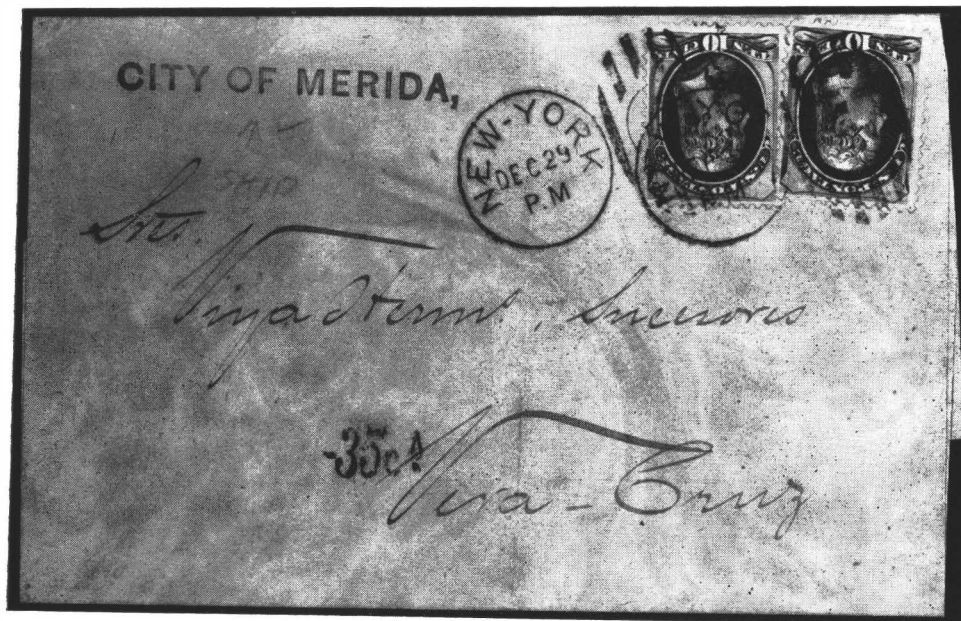 CITY OF MERIDA,
NEW-YORK
DEC 29
P.M
10 10
SHIP
Sres.
Viya Hermº. Sucesores
-35c.
Vera-Cruz